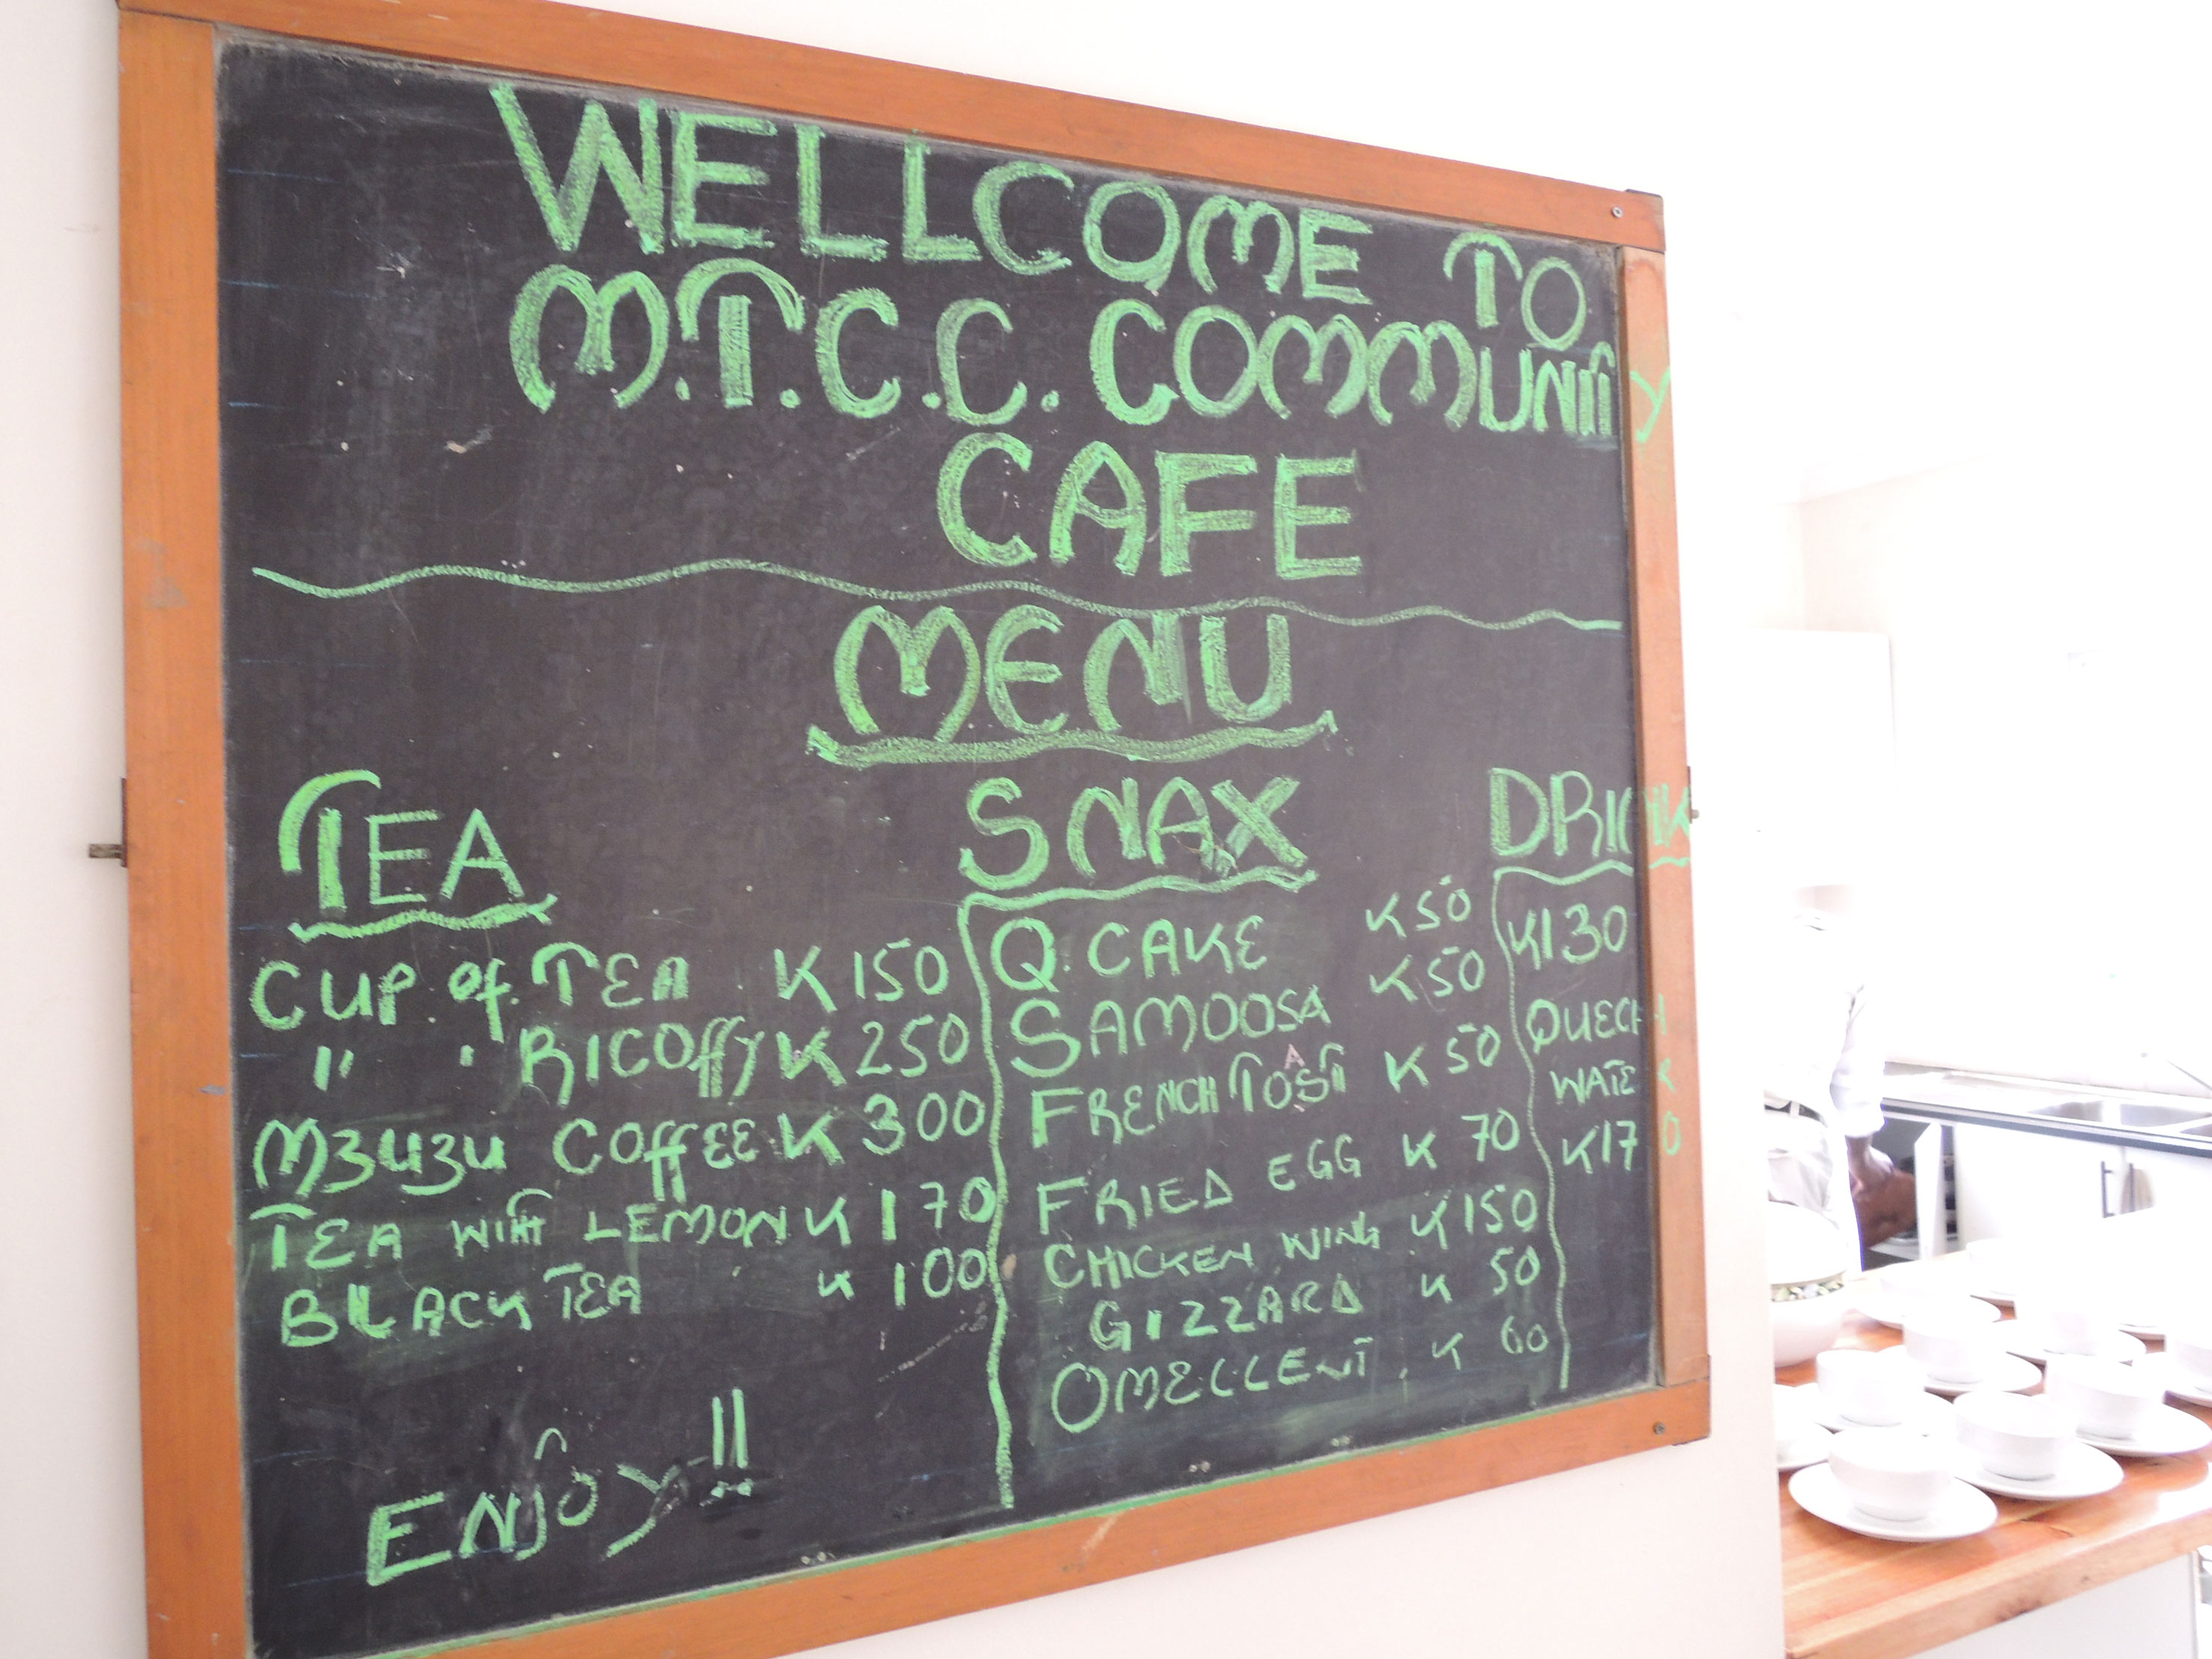 WELLCOME TO
M.T.C.C. COMMUNITY
CAFE
MENU
TEA
CUP of TEA K150
" " RICOffY K250
MZUZU COffEE K300
TEA WITH LEMON K170
BLACK TEA K100
ENJOY!!
SNAX
Q.CAKE K50
SAMOOSA K50
FRENCH TOAST K50
FRIED EGG K 70
CHICKEN WING K150
GIZZARD K 50
OMELLENT K 60
DRINK
K130
QUECH
WATER
K170